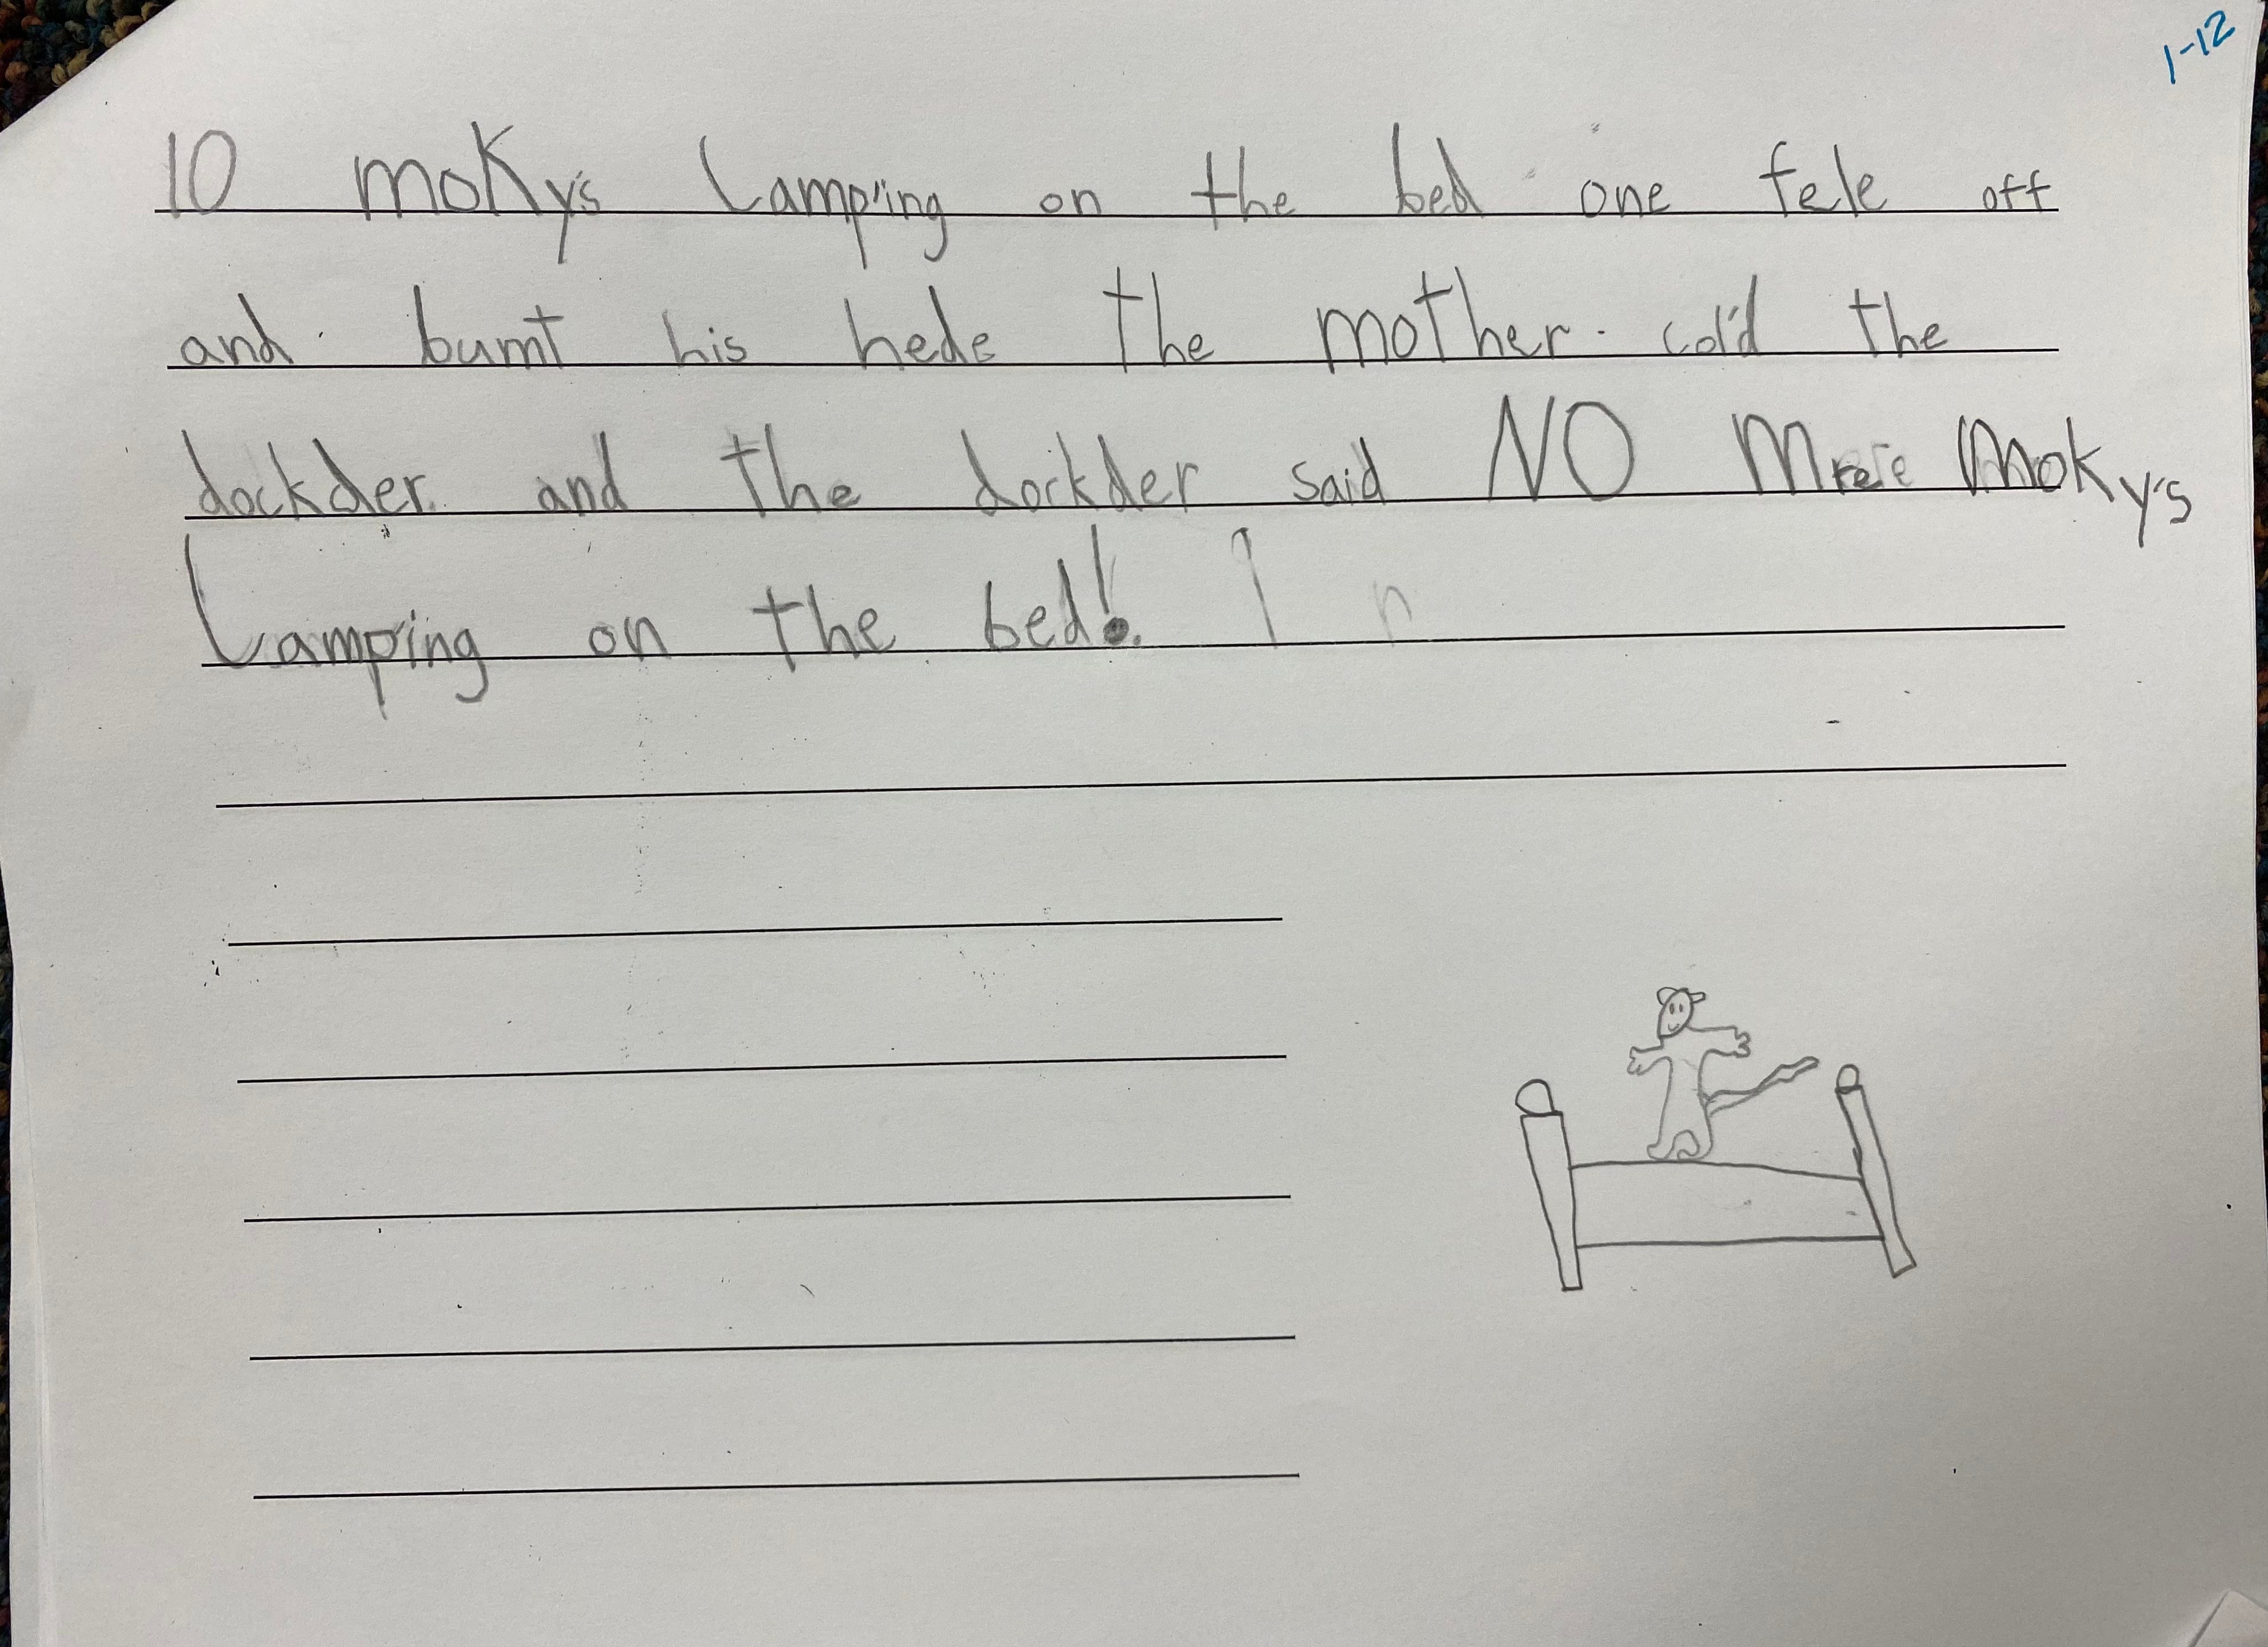 1-12
10 moKys Lamping on the bed one fele off
and bumt his hede the mother cold the
dockder and the dockder said NO Mreie Mokys
Lamping on the bed!.